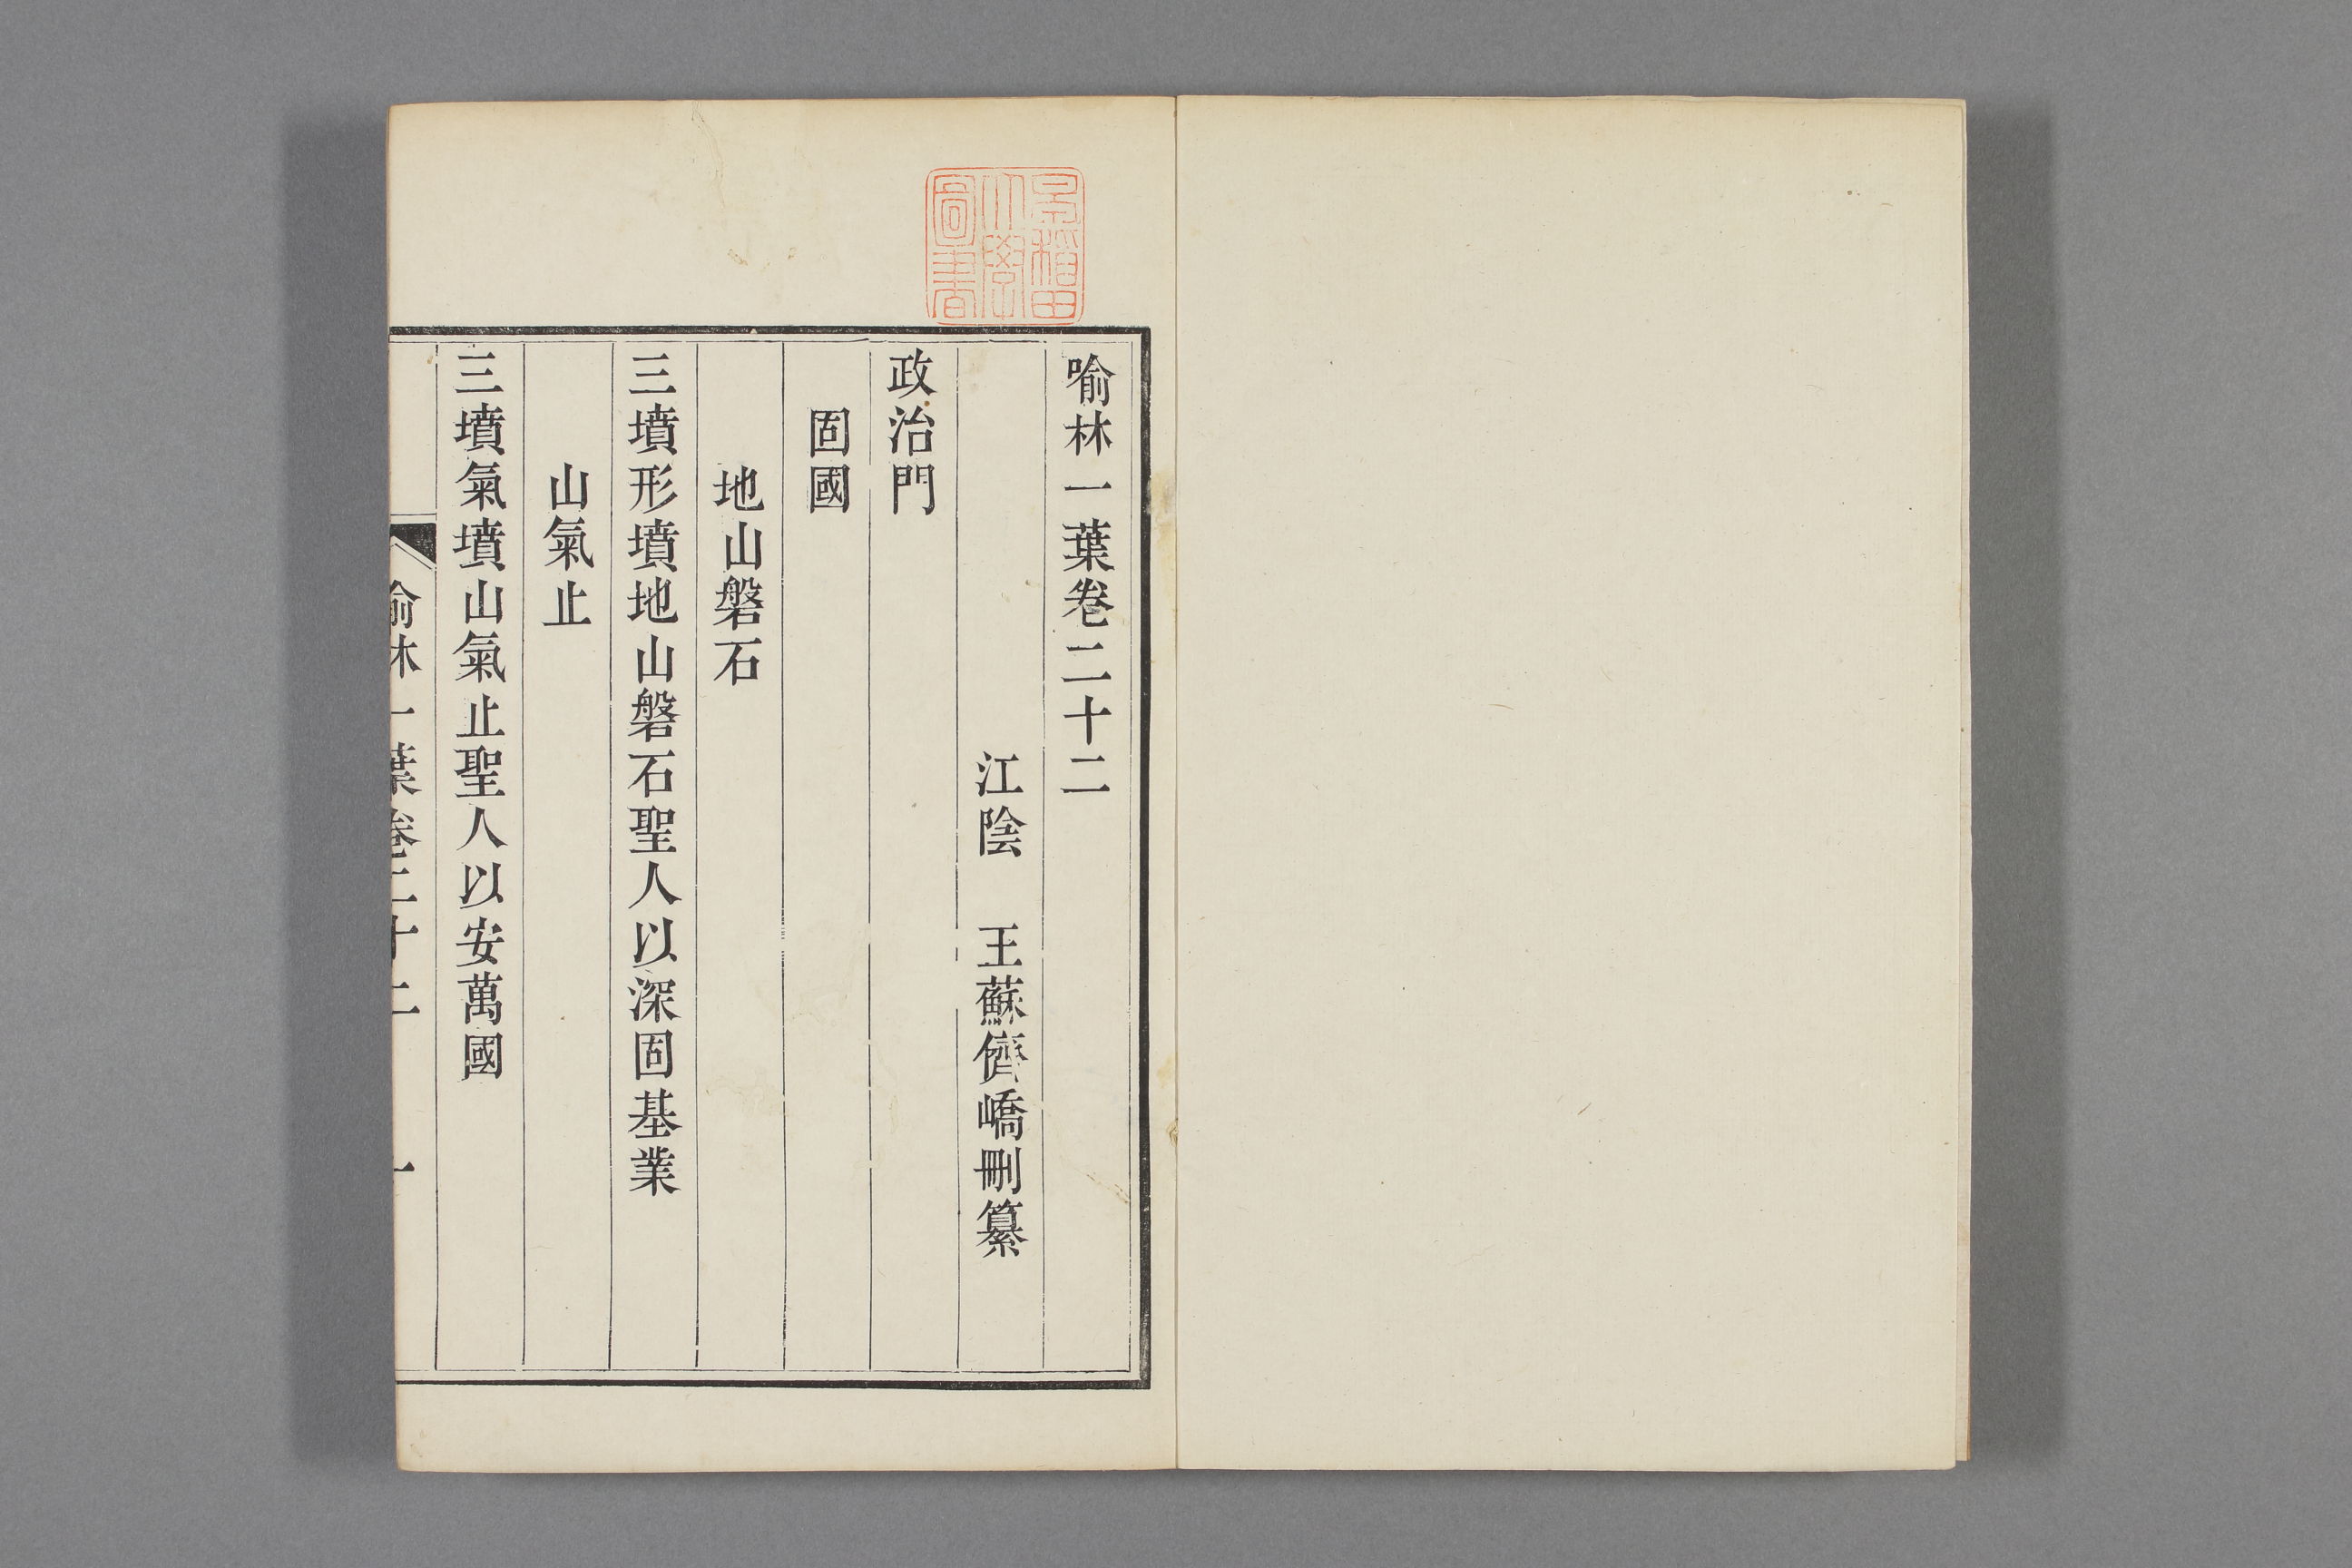 喻林一葉卷二十二
江陰　王蘇儕嶠刪纂
政治門
固國
地山磐石
三墳形墳地山磐石聖人以深固基業
山氣止
三墳氣墳山氣止聖人以安萬國
喻林一葉卷二十二　一
早稻田大學圖書